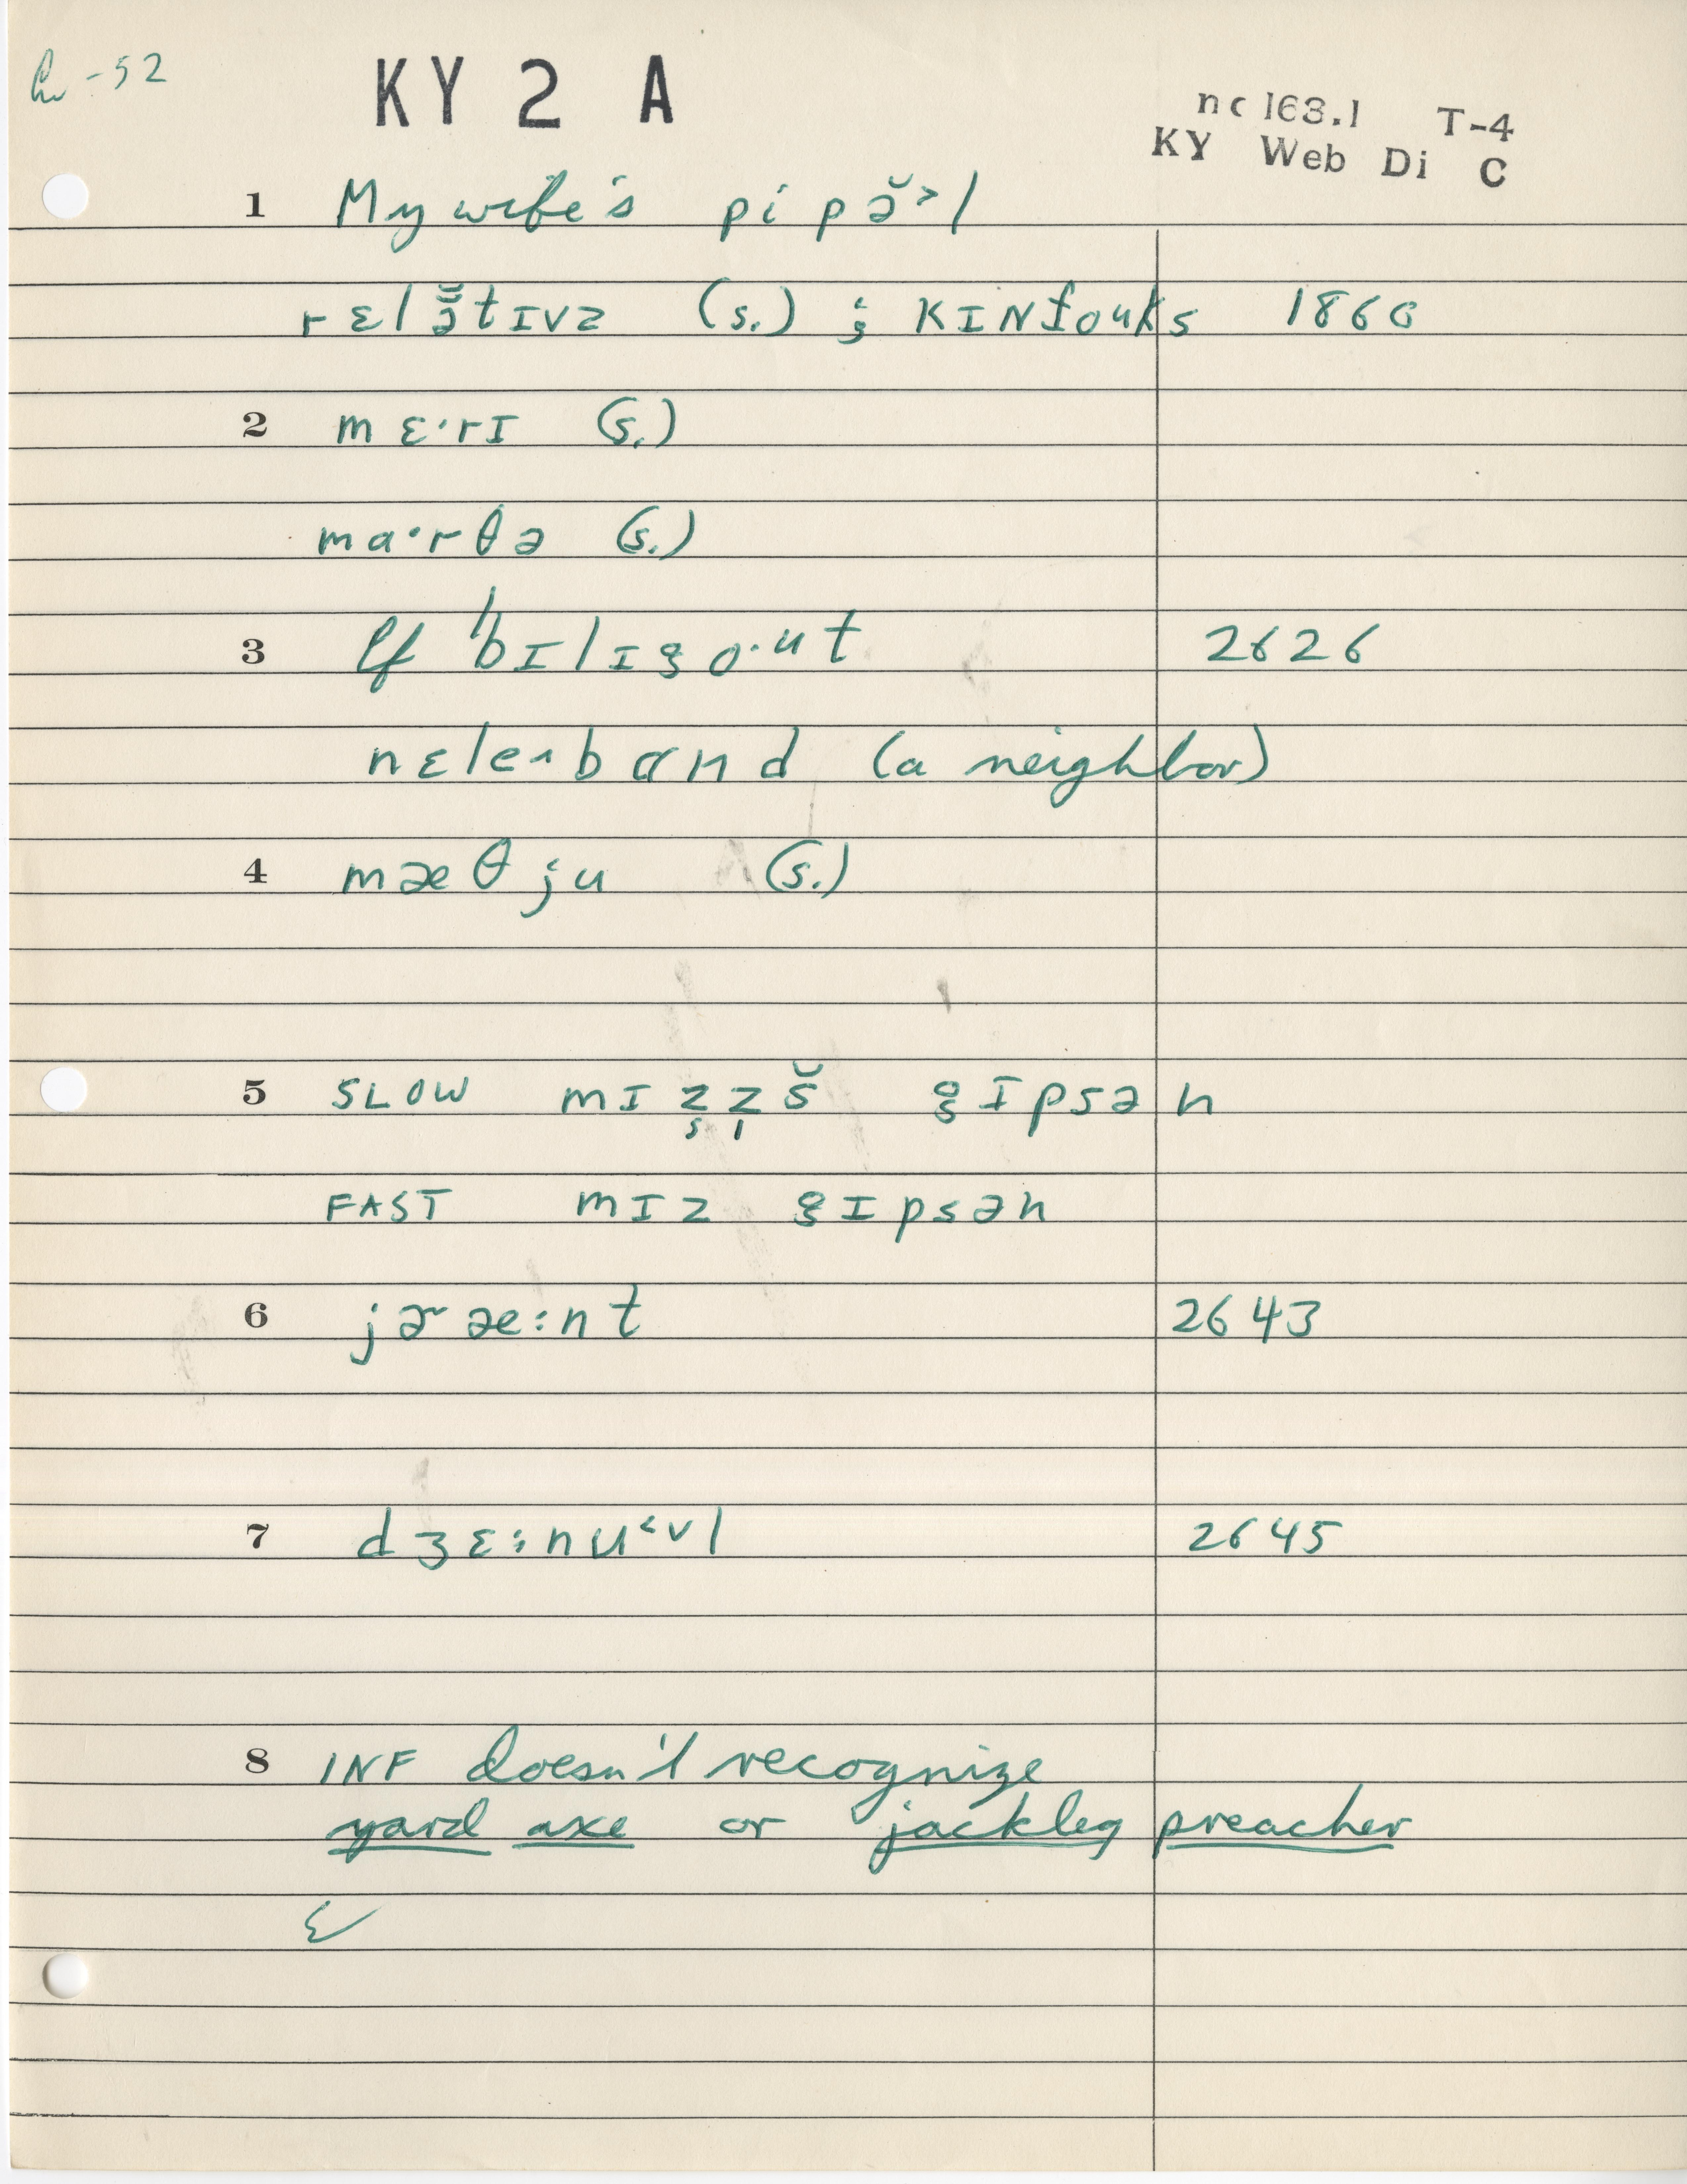 -52
KY 2 A
nc 163.1 T-4
KY Web Di C
1 My wife's pipə̆˃l
rɛlə̆tɪvz (s.) ; kɪnfouks 1860
2 mɛ·rɪ (s.)
ma·rθə (s.)
3 If bɪlɪgo·ut 2626
nɛle˄bɑnd (a neighbor)
4 mæθju (s.)
5 SLOW mɪz̩z̩š gɪpsən
FAST mɪz gɪpsən
6 jɚæ:nt 2643
7 dʒɛ:nu˂vl 2645
8 INF doesn't recognize
yard axe or jackleg preacher